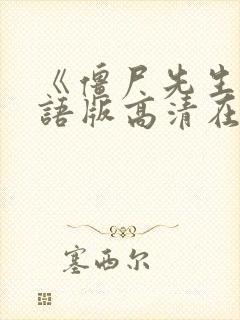 《僵尸先生
語版高清在
塞西尔